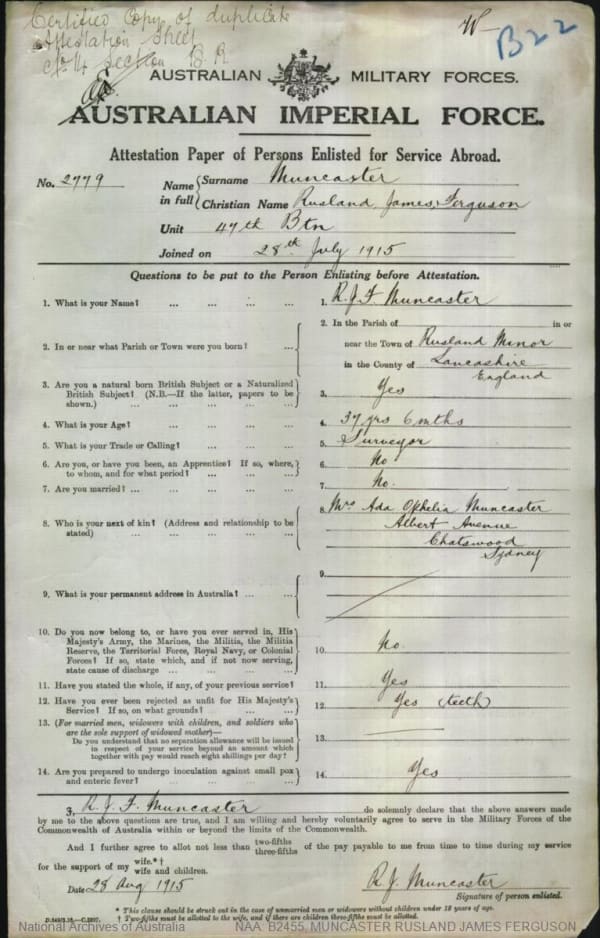 Certified Copy of duplicate
Attestation Sheet
Section B R
B22
AUSTRALIAN MILITARY FORCES.
AUSTRALIAN IMPERIAL FORCE.
Attestation Paper of Persons Enlisted for Service Abroad.
No. 2779
Name in full { Surname Muncaster
Christian Name Rusland James Ferguson
Unit 47th Btn
Joined on 28th July 1915
Questions to be put to the Person Enlisting before Attestation.
1. What is your Name? ... ... ... ... 1. R.J.F Muncaster
2. In or near what Parish or Town were you born? ... 2. In the Parish of in or
near the Town of Rusland Manor
in the County of Lancashire
England
3. Are you a natural born British Subject or a Naturalized
British Subject? (N.B.—If the latter, papers to be
shown.) ... ... ... ... 3. Yes
4. What is your Age? ... ... ... ... 4. 37 yrs 6 mths
5. What is your Trade or Calling? ... ... ... 5. Surveyor
6. Are you, or have you been, an Apprentice? If so, where,
to whom, and for what period? ... ... ... 6. No.
7. Are you married? ... ... ... ... 7. No.
8. Who is your next of kin? (Address and relationship to be
stated) ... ... ... ... 8. Mrs Ada Ophelia Muncaster
Albert Avenue
Chatswood
Sydney
9. What is your permanent address in Australia? ... ... 9.
10. Do you now belong to, or have you ever served in, His
Majesty's Army, the Marines, the Militia, the Militia
Reserve, the Territorial Force, Royal Navy, or Colonial
Forces? If so, state which, and if not now serving,
state cause of discharge ... ... ... 10. No.
11. Have you stated the whole, if any, of your previous service? 11. Yes
12. Have you ever been rejected as unfit for His Majesty's
Service? If so, on what grounds? ... ... 12. Yes (teeth)
13. (For married men, widowers with children, and soldiers who
are the sole support of widowed mother)—
Do you understand that no separation allowance will be issued
in respect of your service beyond an amount which
together with pay would reach eight shillings per day? 13.
14. Are you prepared to undergo inoculation against small pox
and enteric fever? ... ... ... ... 14. Yes
I, R. J. F. Muncaster do solemnly declare that the above answers made
by me to the above questions are true, and I am willing and hereby voluntarily agree to serve in the Military Forces of the
Commonwealth of Australia within or beyond the limits of the Commonwealth.
And I further agree to allot not less than two-fifths three-fifths of the pay payable to me from time to time during my service
for the support of my wife.*† wife and children.
Date 28 Aug 1915 R. J. Muncaster
Signature of person enlisted.
* This clause should be struck out in the case of unmarried men or widowers without children under 18 years of age.
† Two-fifths must be allotted to the wife, and if there are children three-fifths must be allotted.
National Archives of Australia NAA: B2455, MUNCASTER RUSLAND JAMES FERGUSON